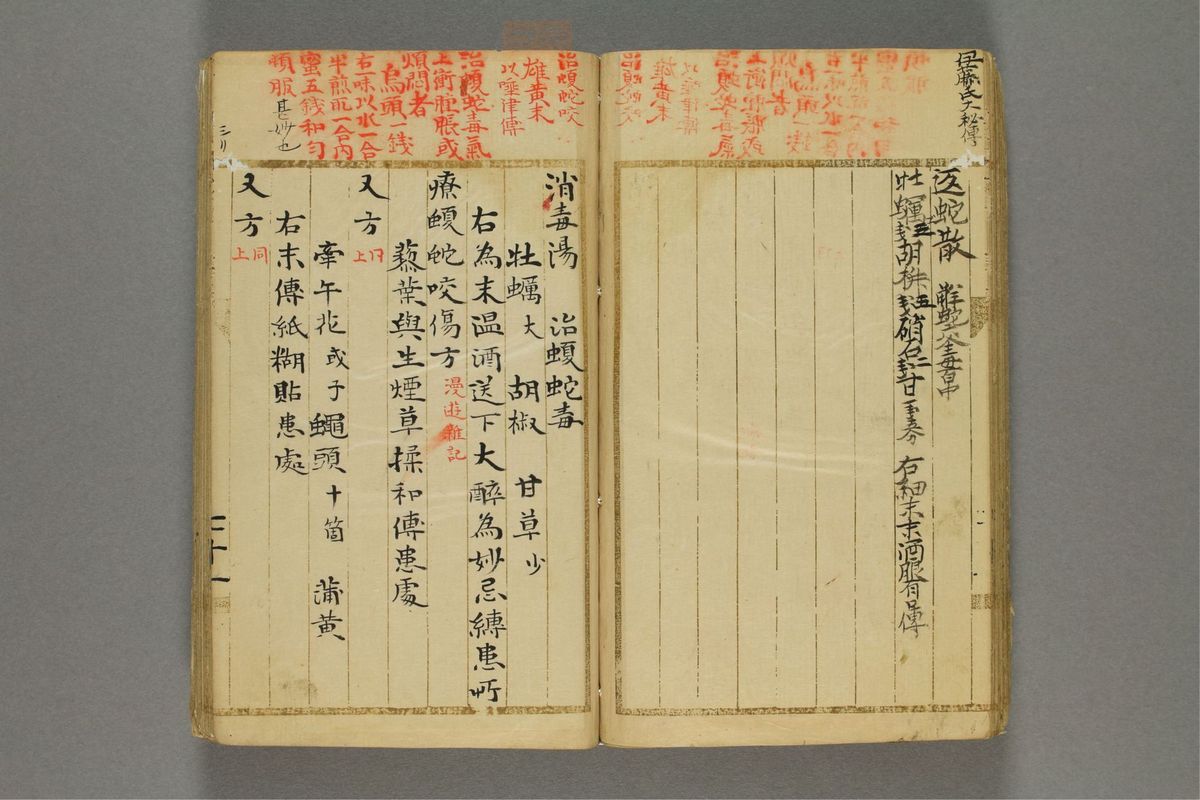 伊藤氏大秘傳
返蛇散
牡 五 胡 五 硝石 二 甘 右細末酒服
治蝮蛇咬
雄黃末
以唾律傳
治蝮蛇毒氣
上衝腫脹或
煩悶者
烏頭一錢
右一味以水一合
半煎取一合內
蜜五錢和勻
頓服甚妙也
消毒湯 治蝮蛇毒
牡蠣大 胡椒 甘草少
右為末温酒送下大醉為妙忌縛患所
療蝮蛇咬傷方 漫遊雜記
蓼葉與生煙草揉和傅患處
又方 同上
牽午花或子蠅頭十箇 蒲黃
右末傅紙糊貼患處
又方 同上
二十一